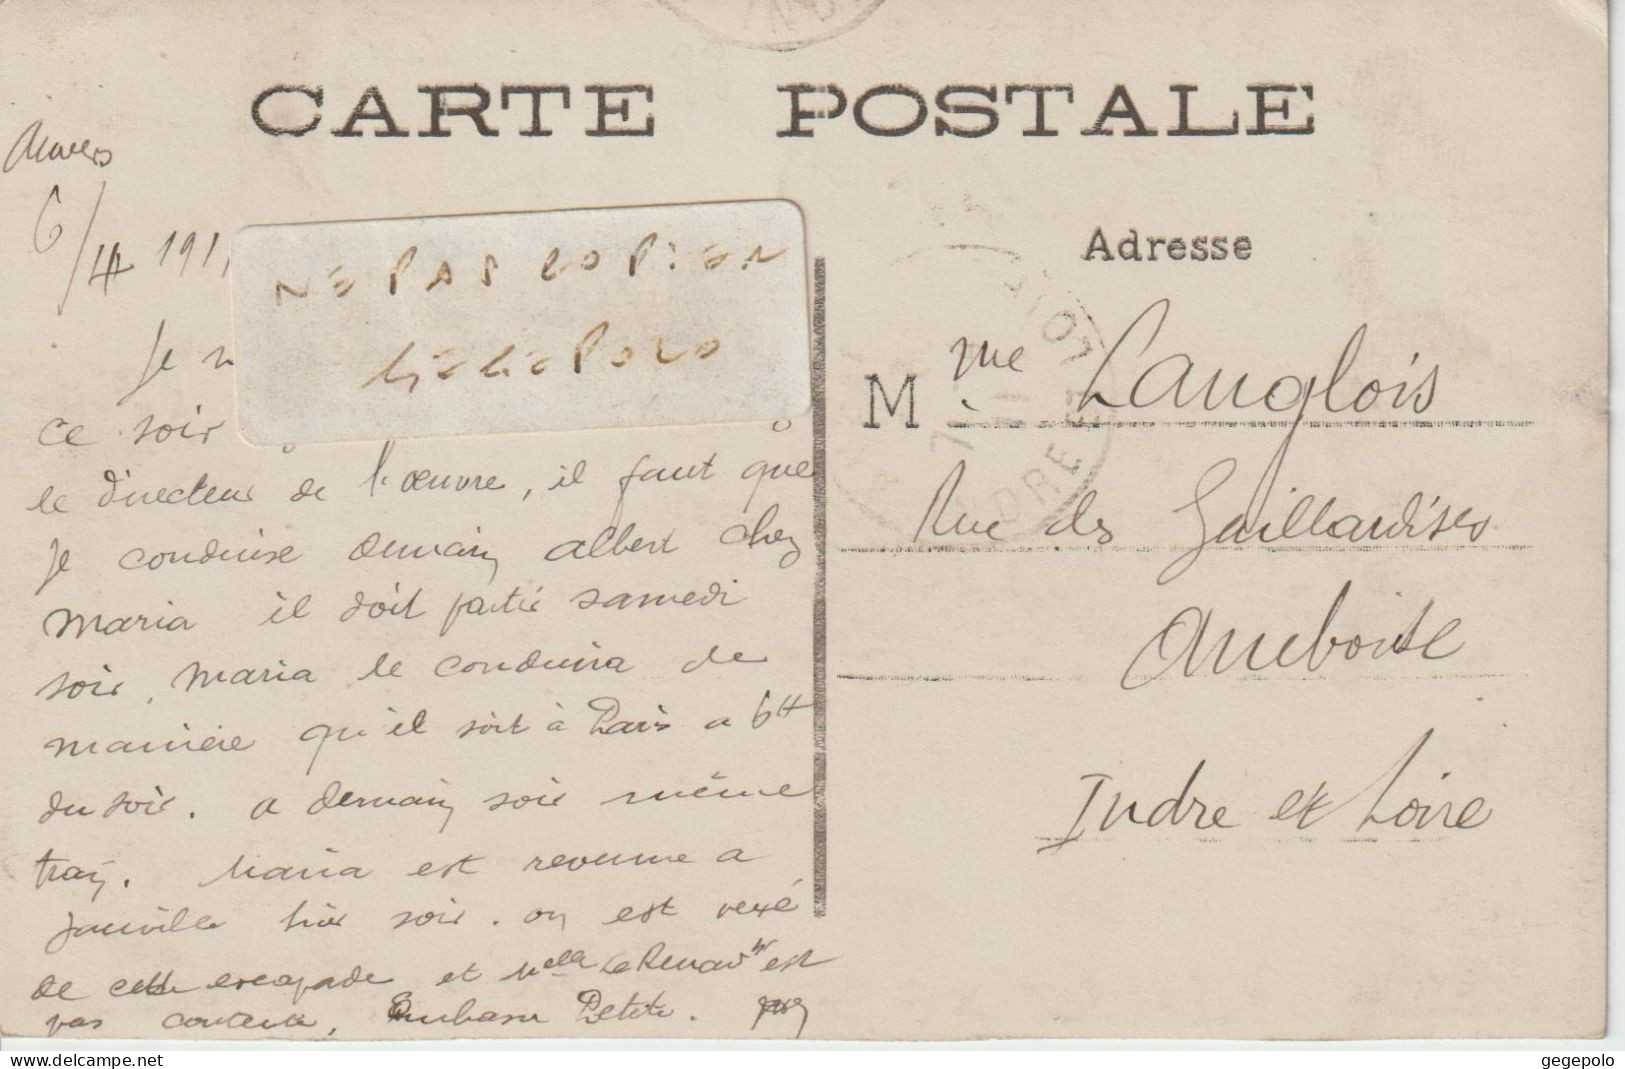 CARTE POSTALE
6/4 191
NE PAS COPIER
GEGEPOLO
Je
ce soir
le directeur de l'œuvre, il faut que
je conduise demain albert chez
maria il doit partir samedi
soir, maria le conduira de
manière qu'il soit à Paris a 6H
du soir. a demain soir même
train. Maria est revenue a
Janville hier soir. on est vexé
de cette escapade et Melle est
pas contente. Embasse Petite.
Adresse
Mme Langlois
Rue des Gaillardises
Amboise
Indre et Loire
gegepolo